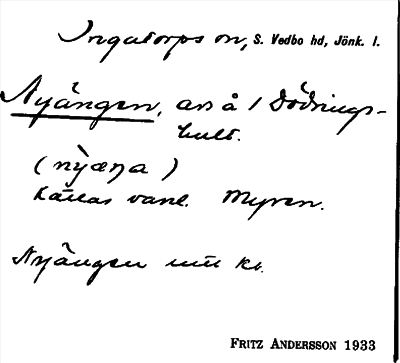 Ingatorps sn, S. Vedbo hd, Jönk. l.
Nyängen, avs å 1 Dödrings-
hult.
(nỳæŋa)
Kallas vanl. Myren.
Nyängen utt kb.
FRITZ ANDERSSON 1933